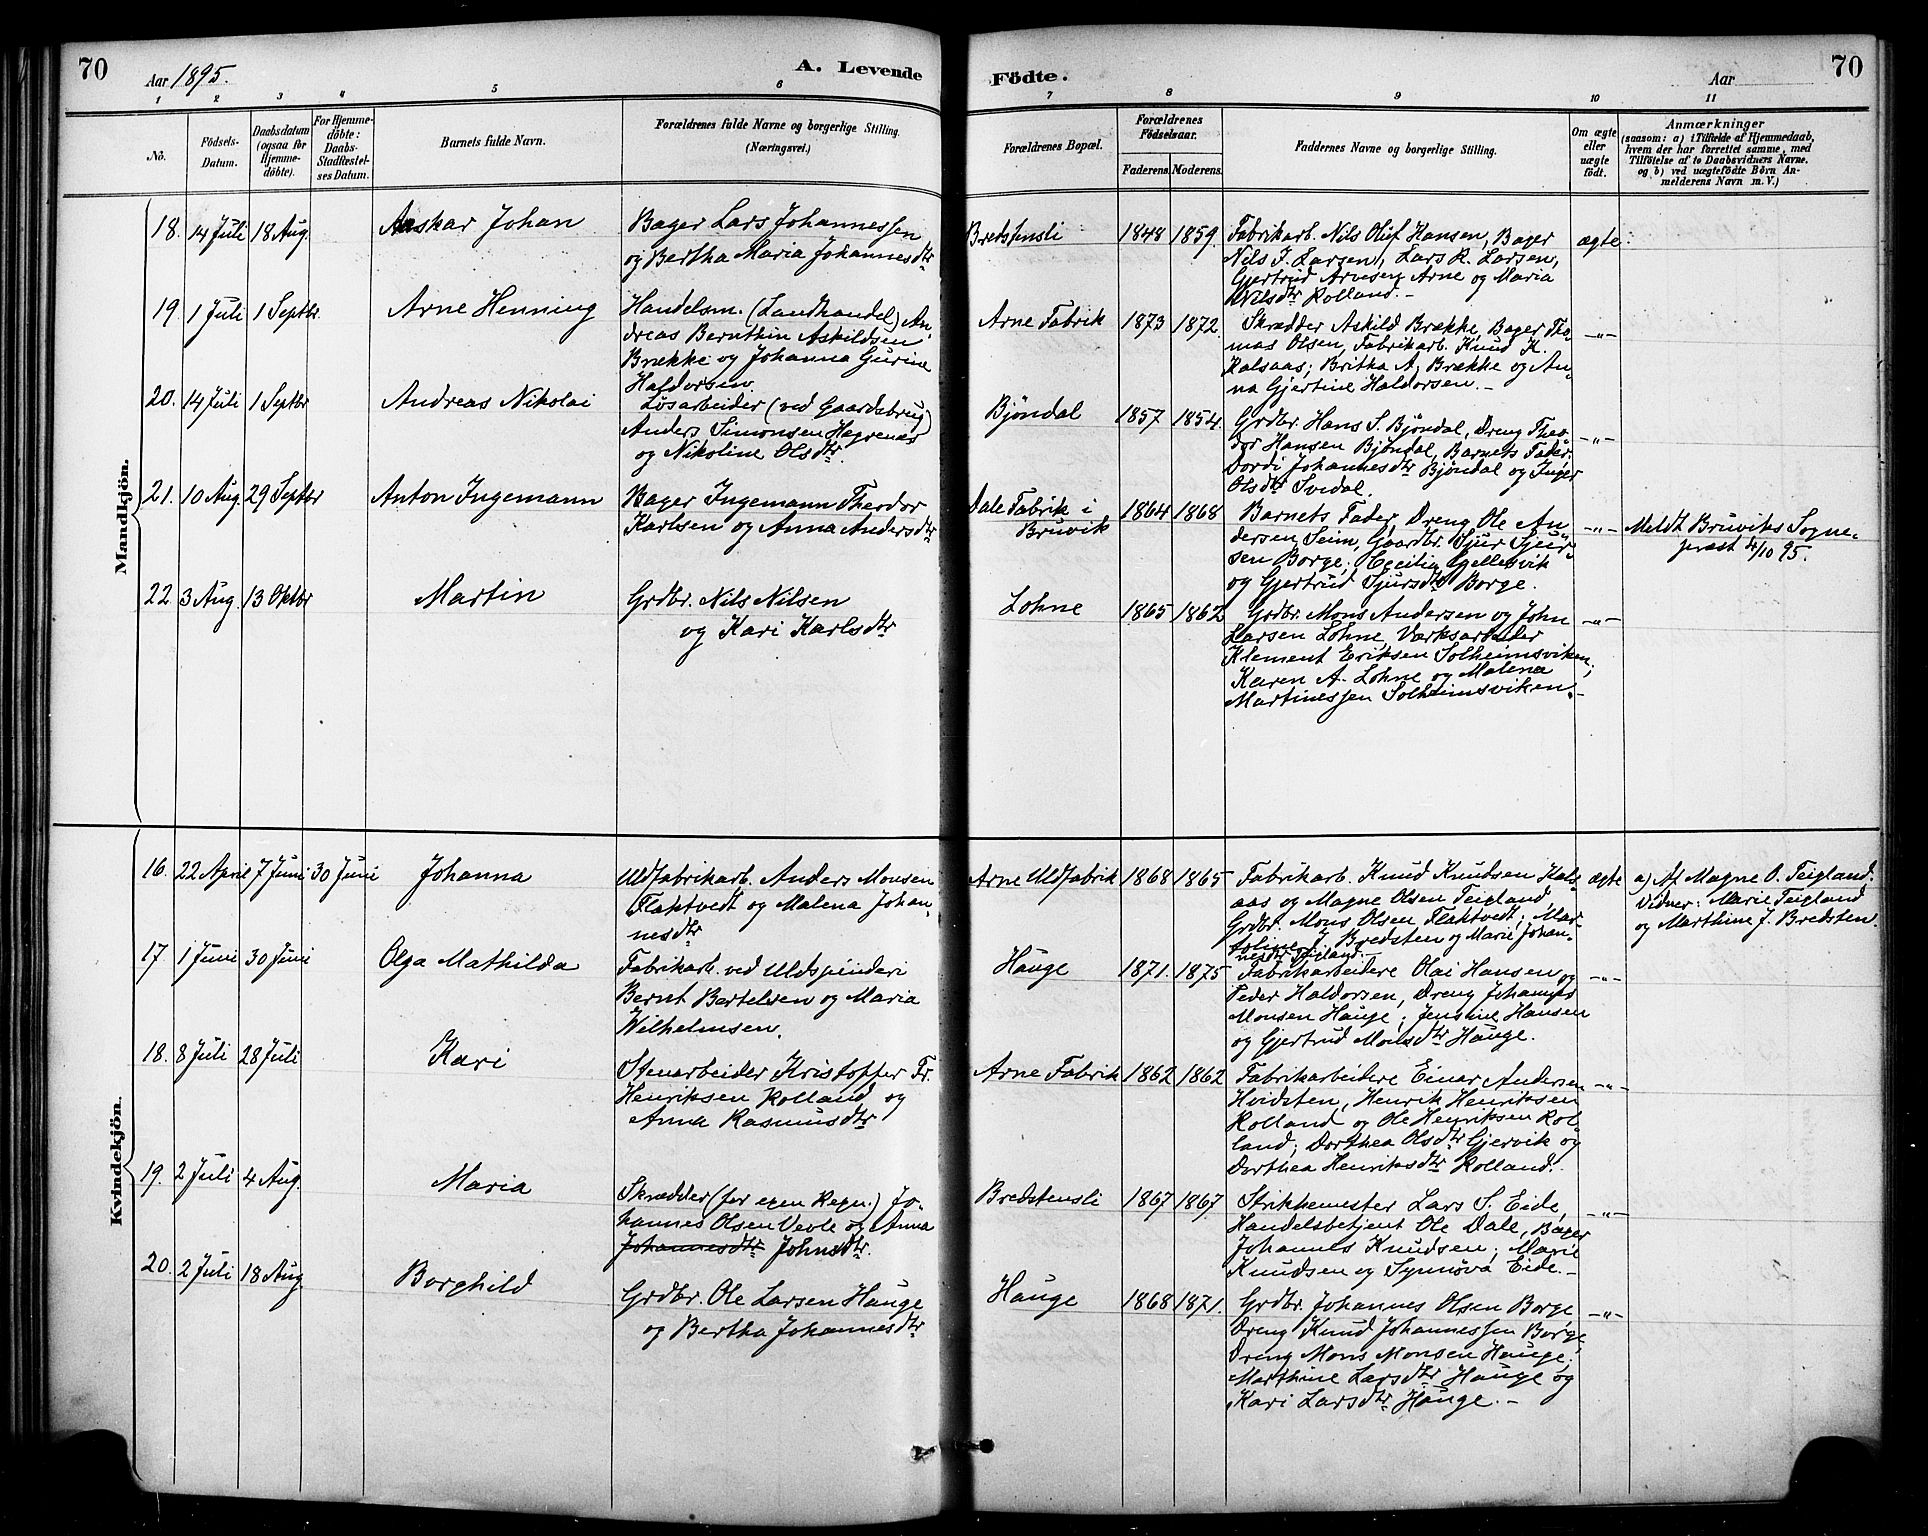 70
Aar 1895.
A. Levende
Födte.
Aar
70
1 2 3 4 5 6 7 8 9 10 11
No.
Födsels-
Datum.
Daabsdatum
(ogsaa for
Hjemme-
döbte).
For Hjemme-
döbte:
Daabs-
Stadfæstel-
ses Datum.
Barnets fulde Navn.
Forældrenes fulde Navne og borgerlige Stilling.
(Næringsvei.)
Forældrenes Bopæl.
Forældrenes
Födselsaar.
Faderens. Moderens.
Faddernes Navne og borgerlige Stilling.
Om ægte
eller
uægte
födt.
Anmærkninger
(saasom: a) i Tilfælde af Hjemmedaab,
hvem der har forrettet samme, med
Tilföielse af to Daabsvidners Navne,
og b) ved uægtefödte Börn An-
melderens Navn m. V.)
Mandkjön.
18. 14 Juli 18 Aug. Aaskar Johan
Bager Lars Johannessen
og Bertha Maria Johannesdtr
Bredstensli 1848 1859.
Fabrikarb. Nils Oluf Hansen, Bager
Nils J. Larsen, Lars R. Larsen,
Gjertrud Arnesen Arne og Maria
Nilsdtr Rolland.-
ægte
19. 1 Juli 1 Septbr. Arne Henning
Handelsm. (Landhandel) An-
dreas Bernthin Askildsen
Brække og Johanna Gurine
Haldorsen.
Arne Fabrik 1873 1872.
Skrædder Askild Brække, Bager Tho-
mas Olsen, Fabrikarb. Knud K.
Kalsaas; Britha A. Brække og An-
na Gjertine Haldorsen.-
-"-
20. 14 Juli 1 Septbr Andreas Nikolai
Løsarbeider (ved Gaardsbrug)
Anders Simonsen Hegrenæs
og Nikoline Olsdtr
Bjöndal 1857 1854.
Grdbr. Hans S. Bjöndal, Dreng Theo-
dor Hansen Bjöndal, Barnets Fader.
Dordi Johannesdtr Bjöndal og Inger
Olsdtr Svedal.
-"-
21. 10 Aug. 29 Septbr Anton Ingemann
Bager Ingemann Theodor
Karlsen og Anna Andersdtr
Dale Fabrik i
Bruvik
1864 1868
Barnets Fader, Dreng Ole An-
dersen Seim, Gaardbr. Sjur Sjur-
sen Borge; Cecilia Gjellesvik
og Gjertrud Sjursdtr Borge.
-"-
Meldt Bruviks Sogne-
præst 4/10 95.
22. 3 Aug. 13 Oktbr Martin
Grdbr. Nils Nilsen
og Kari Karlsdtr
Lohne 1865 1862
Grdbr. Mons Andersen og John
Larsen Lohne, Værksarbeider
Klement Eriksen Solheimsviken;
Karen A. Lohne og Malena
Martinessen Solheimsviken.-
-"-
Kvindekjön.
16. 22 April 7 Juni 30 Juni Johanna
Uldfabrikarb. Anders Monsen
Flaktvedt og Malena Johan-
nesdtr
Arne Uldfabrik 1868 1865
Fabrikarb. Knud Knudsen Kals-
aas og Magne Olsen Teigland,
Grdbr. Mons Olsen Flaktvedt; Mar-
J. Bredsten og Marie Johan-
nesdtr Teigland.-
ægte
a) Af Magne O. Teigland.
Vidner: Marie Teigland
og Marthine J. Bredsten.
17. 1 Juni 30 Juni Olga Mathilda
Fabrikarb. ved Uldspinderi
Bernt Bertelsen og Maria
Wilhelmsen.
Hauge 1871. 1875
Fabrikarbeidere Olai Hansen og
Peder Haldorsen, Dreng Johannes
Monsen Hauge; Jensine Hansen
og Gjertrud Monsdtr Hauge.
-"-
18. 8 Juli 28 Juli Kari
Stenarbeider Kristoffer Fr.
Henriksen Rolland og
Anna Rasmusdtr
Arne Fabrik 1862 1862
Fabrikarbeidere Einar Andersen
Hvidsten, Henrik Henriksen
Rolland og Ole Henriksen Rol-
land; Dorthea Olsdtr Gjervik og
Dorthea Henriksdtr Rolland.
-"-
19. 2 Juli 4 Aug. Maria
Skrædder (for egen Regn.) Jo-
hannes Olsen Vevle og Anna
Johannesdtr Johnsdtr.
Bredstensli 1867 1867
Strikkemester Lars S. Eide,
Handelsbetjent Ole Dale, Bager
Johannes Knudsen; Marie
Knudsen og Synnöva Eide.-
-"-
20. 2 Juli 18 Aug Borghild
Grdbr. Ole Larsen Hauge
og Bertha Johannesdtr
Hauge 1868 1871.
Grdbr. Johannes Olsen Borge,
Dreng Knud Johannessen Borge,
Dreng Mons Monsen Hauge;
Marthine Larsdtr Hauge og
Kari Larsdtr Hauge.-
-"-